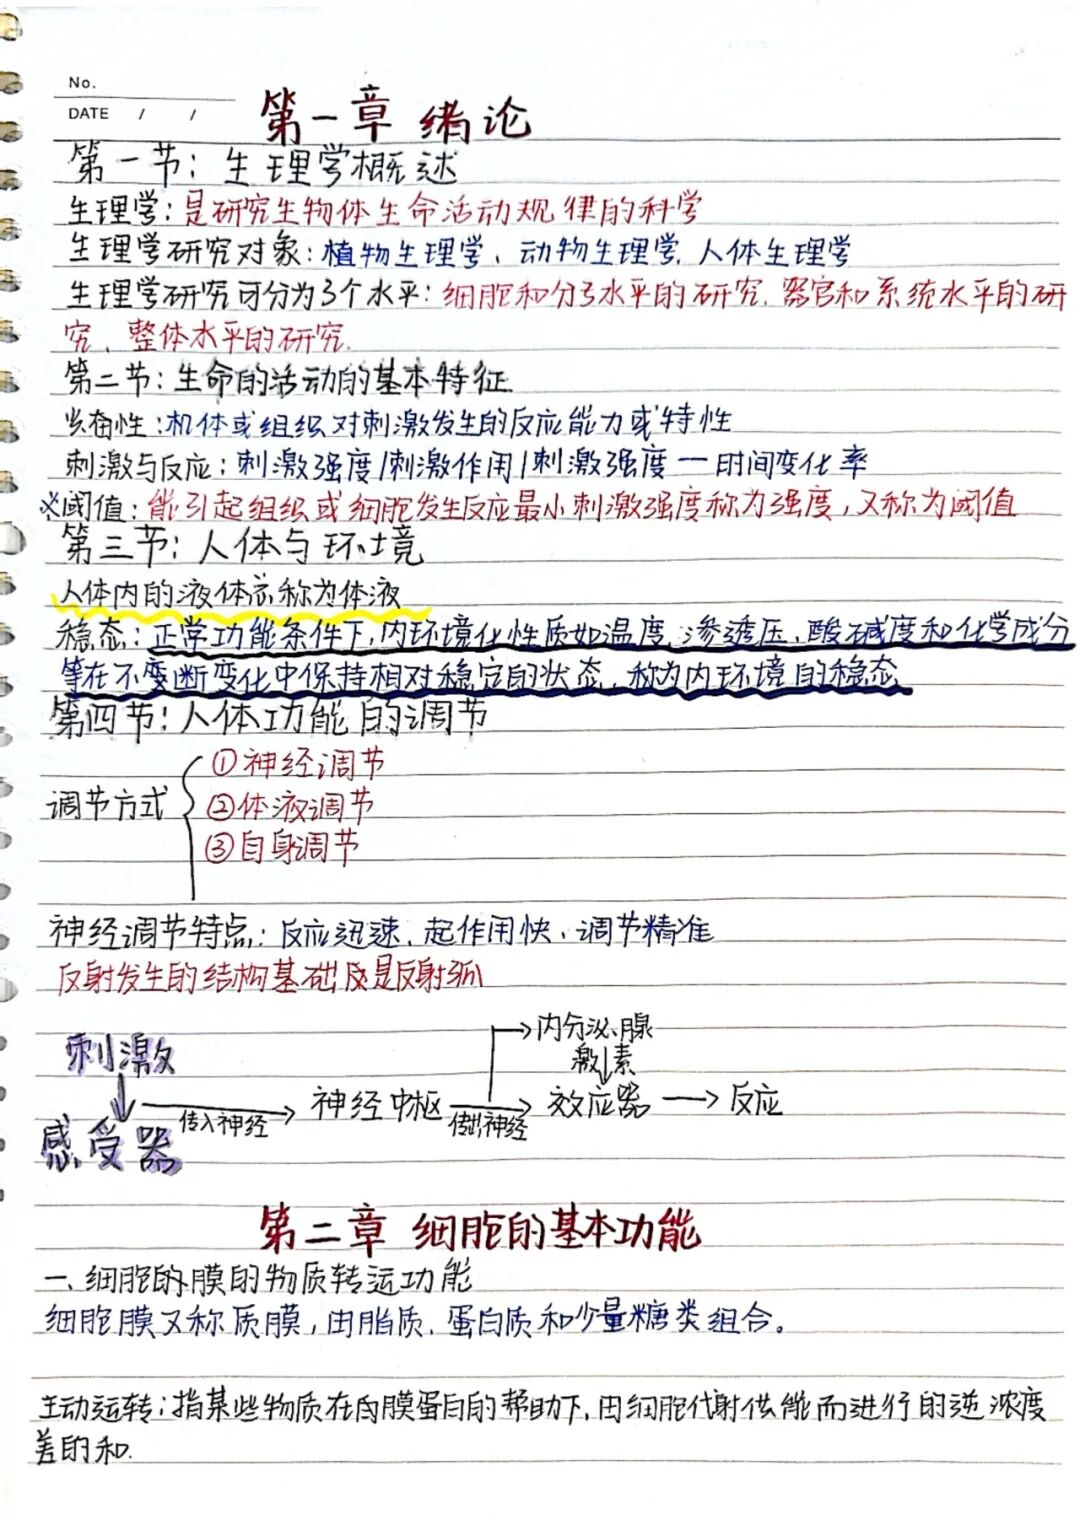 No.
DATE / /
第一章 绪论
第一节：生理学概述
生理学：是研究生物体生命活动规律的科学
生理学研究对象：植物生理学、动物生理学、人体生理学
生理学研究可分为3个水平：细胞和分子水平的研究、器官和系统水平的研
究、整体水平的研究.
第二节：生命的活动的基本特征
兴奋性：机体或组织对刺激发生的反应能力或特性
刺激与反应：刺激强度/刺激作用/刺激强度一时间变化率
※阈值：能引起组织或细胞发生反应最小刺激强度称为强度，又称为阈值
第三节：人体与环境
人体内的液体称为体液
稳态：正常功能条件下，内环境化性质如温度、渗透压、酸碱度和化学成分
等在不变断变化中保持相对稳定的状态，称为内环境的稳态
第四节：人体功能的调节
①神经调节
调节方式 ②体液调节
③自身调节
神经调节特点：反应迅速、起作用快、调节精准
反射发生的结构基础是反射弧
内分泌腺
刺激 激素
传入神经 神经中枢 传出神经 效应器 反应
感受器
第二章 细胞的基本功能
一、细胞的膜的物质转运功能
细胞膜又称质膜，由脂质、蛋白质和少量糖类组合。
主动运转：指某些物质在膜蛋白的帮助下，由细胞代谢供能而进行的逆浓度
差的和.